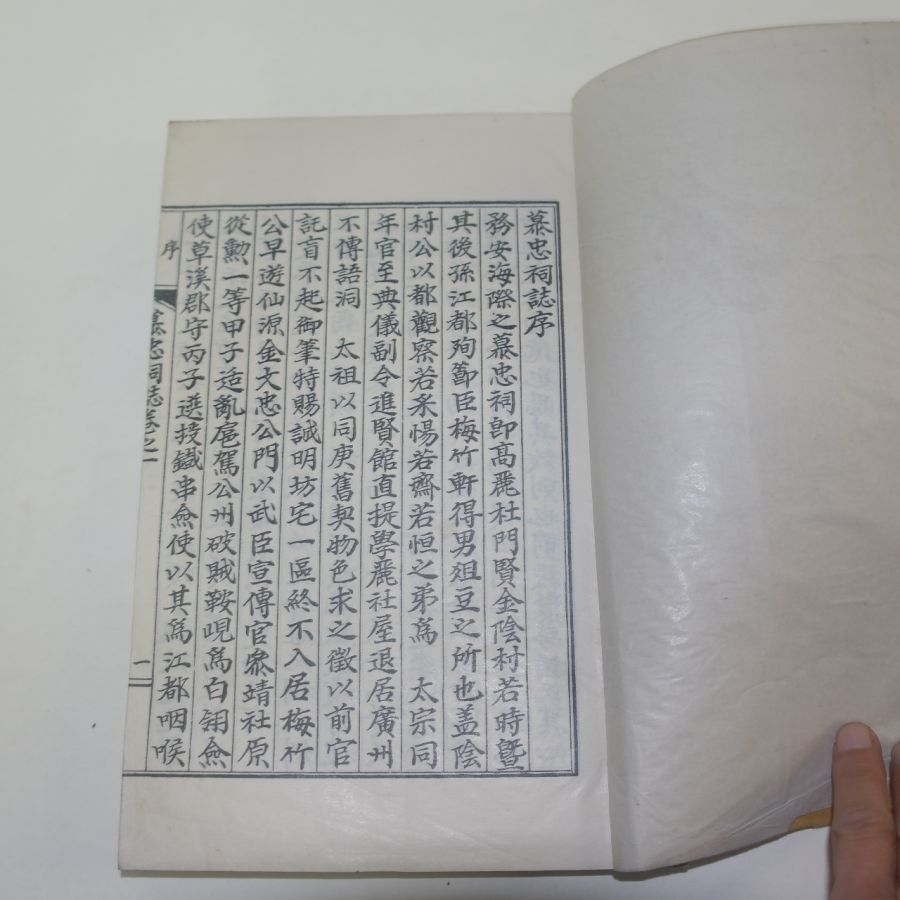 慕忠祠誌序
務安海際之慕忠祠卽高麗杜門賢金陰村若時曁
其後孫江都殉節臣梅竹軒得男俎豆之所也盖陰
村公以都觀察若采惕若齋若恒之弟爲 太宗同
年官至典儀副令進賢館直提學麗社屋退居廣州
不傳語洞 太祖以同庚舊契物色求之徵以前官
託盲不起御筆特賜誠明坊宅一區終不入居梅竹
公早遊仙源金文忠公門以武臣宣傳官叅靖社原
從勳一等甲子适亂扈駕公州破賊鞍峴爲白翎僉
使草溪郡守丙子選授鐵串僉使以其爲江都咽喉
序
慕忠祠誌卷之一
一